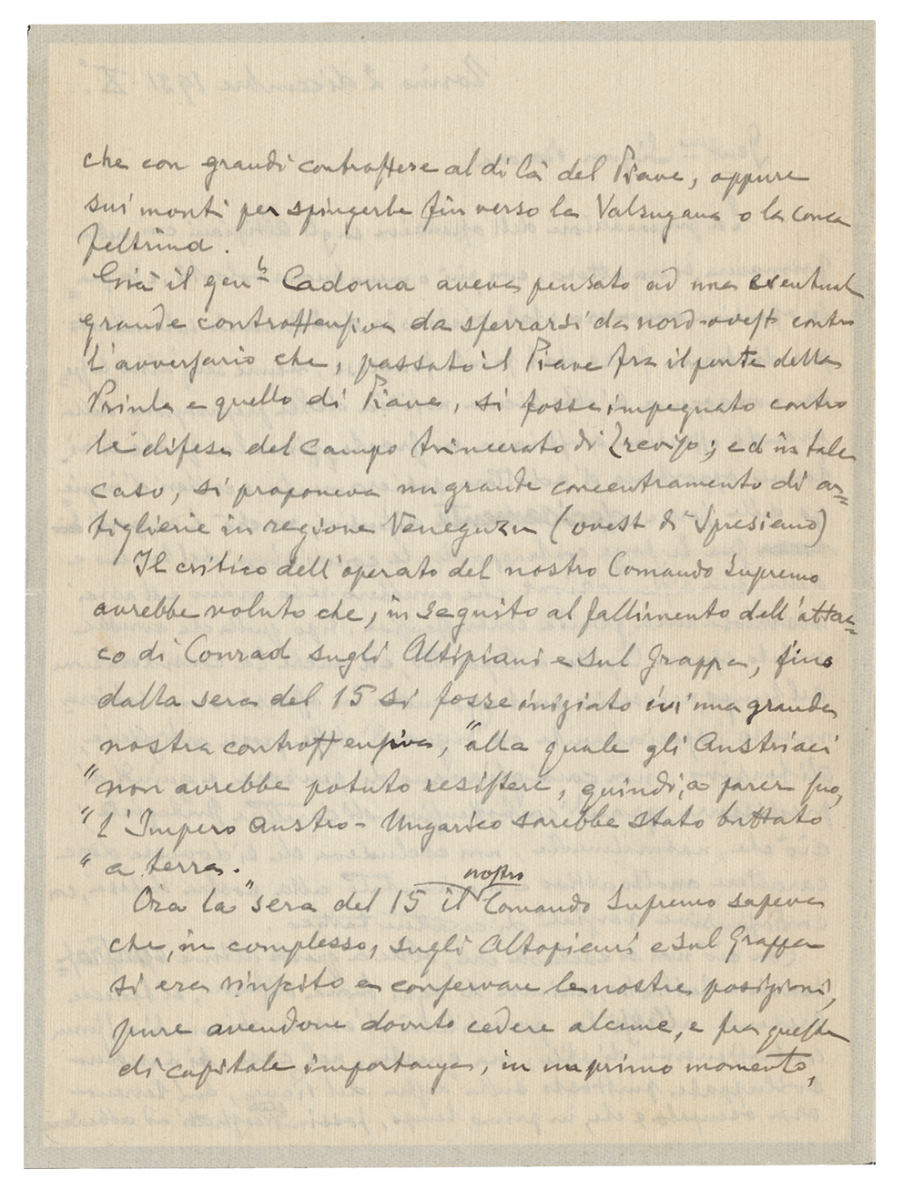 che con grandi controffese al di là del Piave, oppure
sui monti per spingerle fin verso la Valsugana o la conca
feltrina.
Già il gen.le Cadorna aveva pensato ad una eventual
grande controffensiva da sferrarsi da nord-ovest contro
l'avversario che, passato il Piave fra il ponte della
Priula e quello di Piave, si fosse impegnato contro
le difese del campo trincerato di Treviso; ed in tale
caso, si proponeva un grande concentramento di ar=
tiglierie in regione Venegazzu (ovest di Spresiano)
Il critico dell'operato del nostro Comando Supremo
avrebbe voluto che, in seguito al fallimento dell'attac=
co di Conrad sugli Altipiani e sul Grappa, fino
dalla sera del 15 si fosse iniziato ivi una grande
nostra controffensiva, "alla quale gli Austriaci
"non avrebbe potuto resistere, quindi, a parer suo,
"l'Impero Austro-Ungarico sarebbe stato buttato
"a terra.
nostro
Ora la "sera del 15 il Comando Supremo sapeva
che, in complesso, sugli Altopiani e sul Grappa
si era riusciti a conservare le nostre posizioni,
pure avendone dovuto cedere alcune, e fra queste
di capitale importanza, in un primo momento,